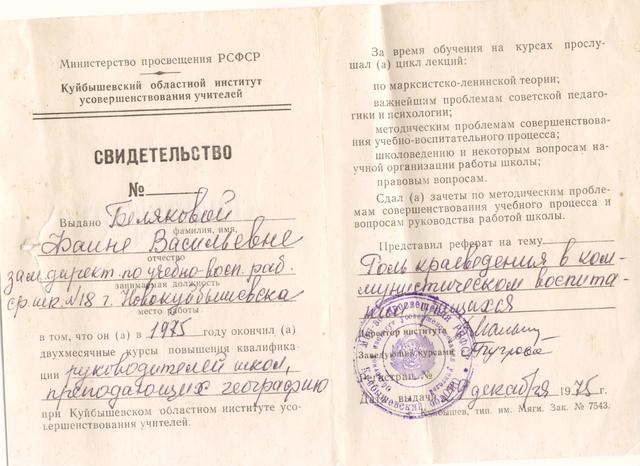 Министерство просвещения РСФСР
Куйбышевский областной институт
усовершенствования учителей
СВИДЕТЕЛЬСТВО
№
Выдано Беляковой
фамилия, имя,
Фаине Васильевне
отчество
зам директ. по учебно-восп. раб.
занимаемая должность
ср. шк. N 18 г. Новокуйбышевска
место работы
в том, что он (а) в 1975 году окончил (а)
двухмесячные курсы повышения квалифика-
ции руководителей школ,
преподающих географию
при Куйбышевском областном институте усо-
вершенствования учителей.
За время обучения на курсах прослу-
шал (а) цикл лекций:
по марксистско-ленинской теории;
важнейшим проблемам советской педаго-
гики и психологии;
методическим проблемам совершенствова-
ния учебно-воспитательного процесса;
школоведению и некоторым вопросам на-
учной организации работы школы;
правовым вопросам.
Сдал (а) зачеты по методическим пробле-
мам совершенствования учебного процесса и
вопросам руководства работой школы.
Представил реферат на тему
Роль краеведения в ком-
мунистическом воспита-
нии учащихся
Директор института
Заведующий курсами
Регистрац. №
Дата выдачи декабря 1975 г.
тип. им. Мяги. Зак. № 7543.